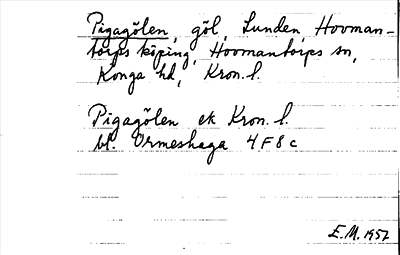 Pigagölen, göl, Lunden, Hovman-
torps köping, Hovmantorps sn,
Konga hd, Kron. l.
Pigagölen ek Kron. l.
bl. Ormeshaga 4F8c
E.M. 1957